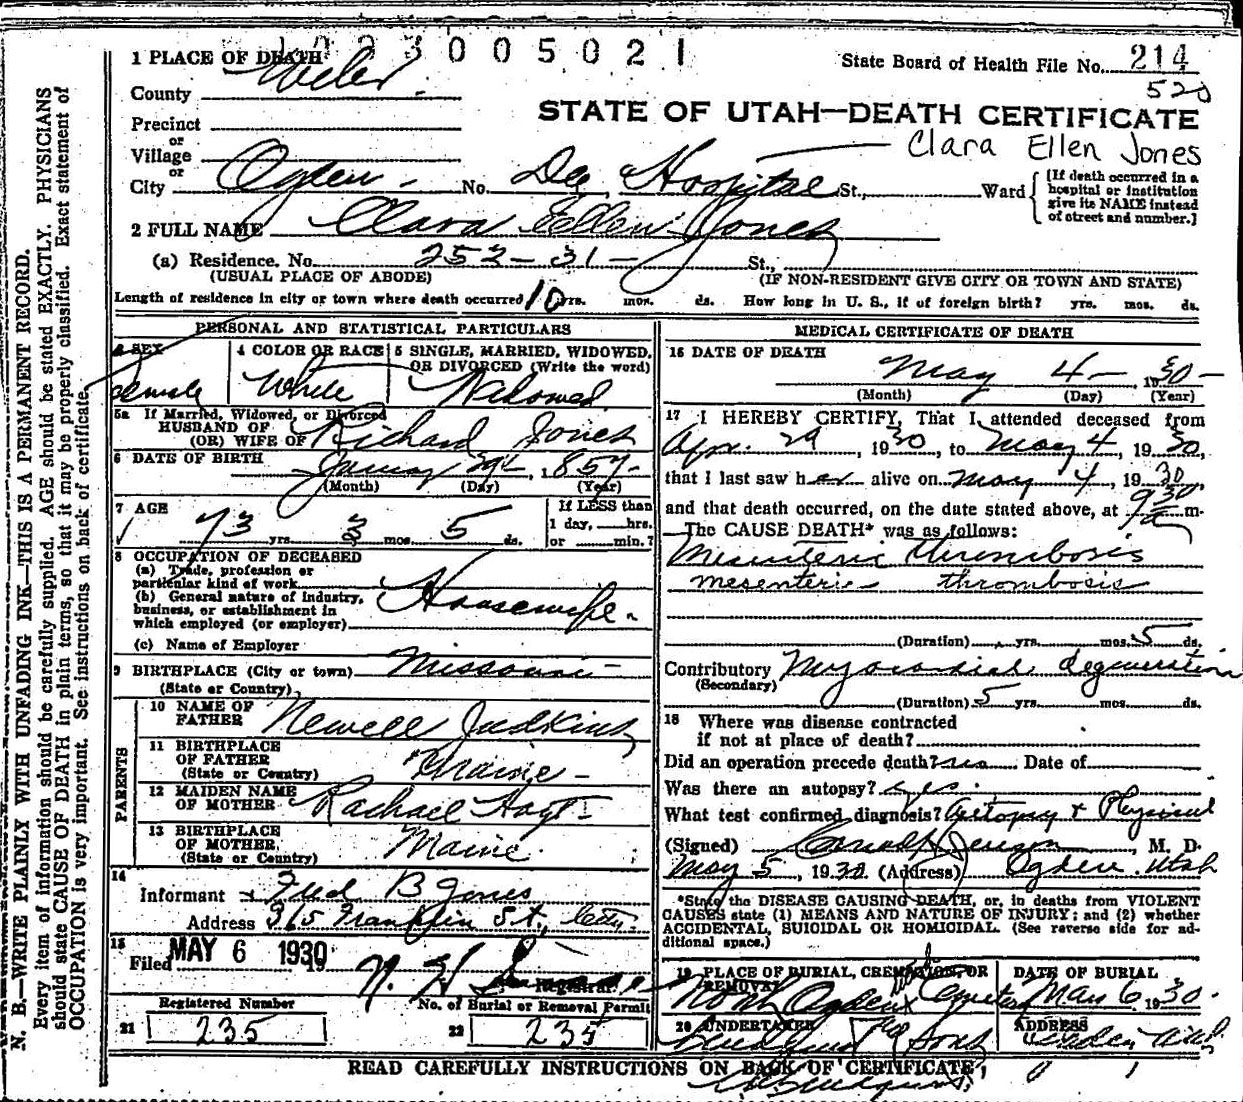 1023005021
1 PLACE OF DEATH
State Board of Health File No. 214
520
County Weber
STATE OF UTAH—DEATH CERTIFICATE
Precinct
or
Village
Clara Ellen Jones
or
City Ogden No. Dee Hospital St., Ward [If death occurred in a hospital or institution give its NAME instead of street and number.]
2 FULL NAME Clara Ellen Jones
(a) Residence. No. 252-31- St.,
(USUAL PLACE OF ABODE) (IF NON-RESIDENT GIVE CITY OR TOWN AND STATE)
Length of residence in city or town where death occurred 10 yrs. mos. ds. How long in U. S., if of foreign birth? yrs. mos. ds.
PERSONAL AND STATISTICAL PARTICULARS
3 SEX
Female
4 COLOR OR RACE
White
5 SINGLE, MARRIED, WIDOWED,
OR DIVORCED (Write the word)
Widowed
5a If Married, Widowed, or Divorced
HUSBAND OF
(OR) WIFE OF Richard Jones
6 DATE OF BIRTH
January 29, 1857
(Month) (Day) (Year)
7 AGE
73 yrs. 3 mos. 5 ds.
If LESS than
1 day, hrs.
or min.?
8 OCCUPATION OF DECEASED
(a) Trade, profession or
particular kind of work
(b) General nature of industry,
business, or establishment in
which employed (or employer)
Housewife.
(c) Name of Employer
9 BIRTHPLACE (City or town) Missouri
(State or Country)
PARENTS
10 NAME OF
FATHER Newell Judkins
11 BIRTHPLACE
OF FATHER
(State or Country) Maine
12 MAIDEN NAME
OF MOTHER Rachael Hoyt
13 BIRTHPLACE
OF MOTHER,
(State or Country) Maine.
14
Informant Fred B Jones
Address 365 Franklin St., City.
15
Filed MAY 6 1930 19
N. H.
Registrar
Registered Number
21 235
No. of Burial or Removal Permit
22 235
MEDICAL CERTIFICATE OF DEATH
16 DATE OF DEATH
May 4 — , 1930 —
(Month) (Day) (Year)
17 I HEREBY CERTIFY, That I attended deceased from
Apr. 29, 1930, to May 4, 1930,
that I last saw her alive on May 4, 1930
and that death occurred, on the date stated above, at 9 30 a m.
The CAUSE DEATH* was as follows:
Mesenteric thrombosis
mesenteric thrombosis
(Duration) yrs. mos. 5 ds.
Contributory Myocardial degeneration
(Secondary)
(Duration) 5 yrs. mos. ds.
18 Where was disease contracted
if not at place of death?
Did an operation precede death? no Date of
Was there an autopsy? yes.
What test confirmed diagnosis? Autopsy & Physical
(Signed) Jenson, M. D.
May 5, 1930 (Address) Ogden, Utah
*State the DISEASE CAUSING DEATH, or, in deaths from VIOLENT
CAUSES state (1) MEANS AND NATURE OF INJURY; and (2) whether
ACCIDENTAL, SUICIDAL OR HOMICIDAL. (See reverse side for ad-
ditional space.)
19 PLACE OF BURIAL, CREMATION, OR
REMOVAL
North Ogden Cemetery
DATE OF BURIAL
May 6, 1930.
20 UNDERTAKER
& Sons
ADDRESS
Ogden Utah
READ CAREFULLY INSTRUCTIONS ON BACK OF CERTIFICATE
N. B.—WRITE PLAINLY WITH UNFADING INK—THIS IS A PERMANENT RECORD.
Every item of information should be carefully supplied. AGE should be stated EXACTLY. PHYSICIANS
should state CAUSE OF DEATH in plain terms, so that it may be properly classified. Exact statement of
OCCUPATION is very important. See instructions on back of certificate.